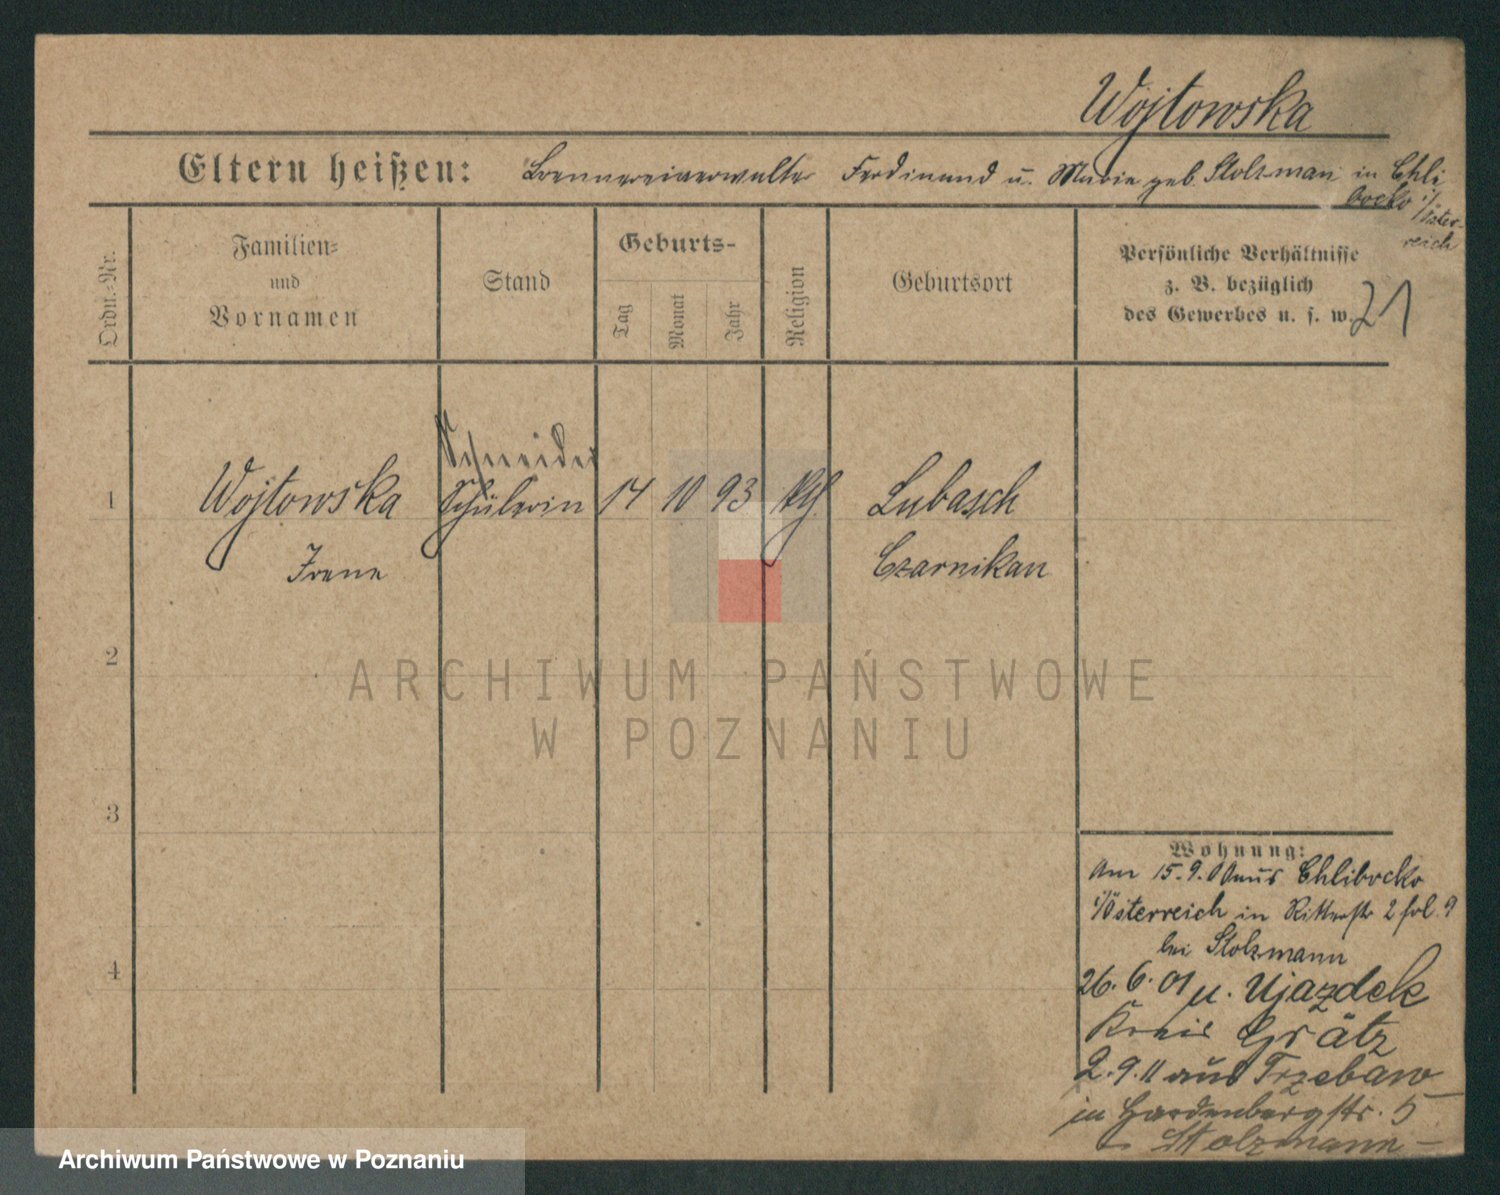 Wojtowska
Eltern heißen: Brennereiverwalter Ferdinand u. Marie geb. Stolzman in Chli
bocko i/
Öster-
reich
Ordn.-Nr.
Familien-
und
Vornamen
Stand
Geburts-
Tag
Monat
Jahr
Religion
Geburtsort
Persönliche Verhältnisse
z. B. bezüglich
des Gewerbes u. s. w.
21
Schneider
1 Wojtowska Schülerin 14 10 93 kth Lubasch
Irene Czarnikau
2
3
4
Wohnung:
Am 15.9.00 aus Chlibocko
i/Österreich in Ritterstr 2 fol. 9
bei Stolzmann
26.6.01 n. Ujazdek
Kreis Grätz
2.9.11 aus Trzebaw
in Hardenbergstr. 5
– Stolzmann –
ARCHIWUM PAŃSTWOWE
W POZNANIU
Archiwum Państwowe w Poznaniu